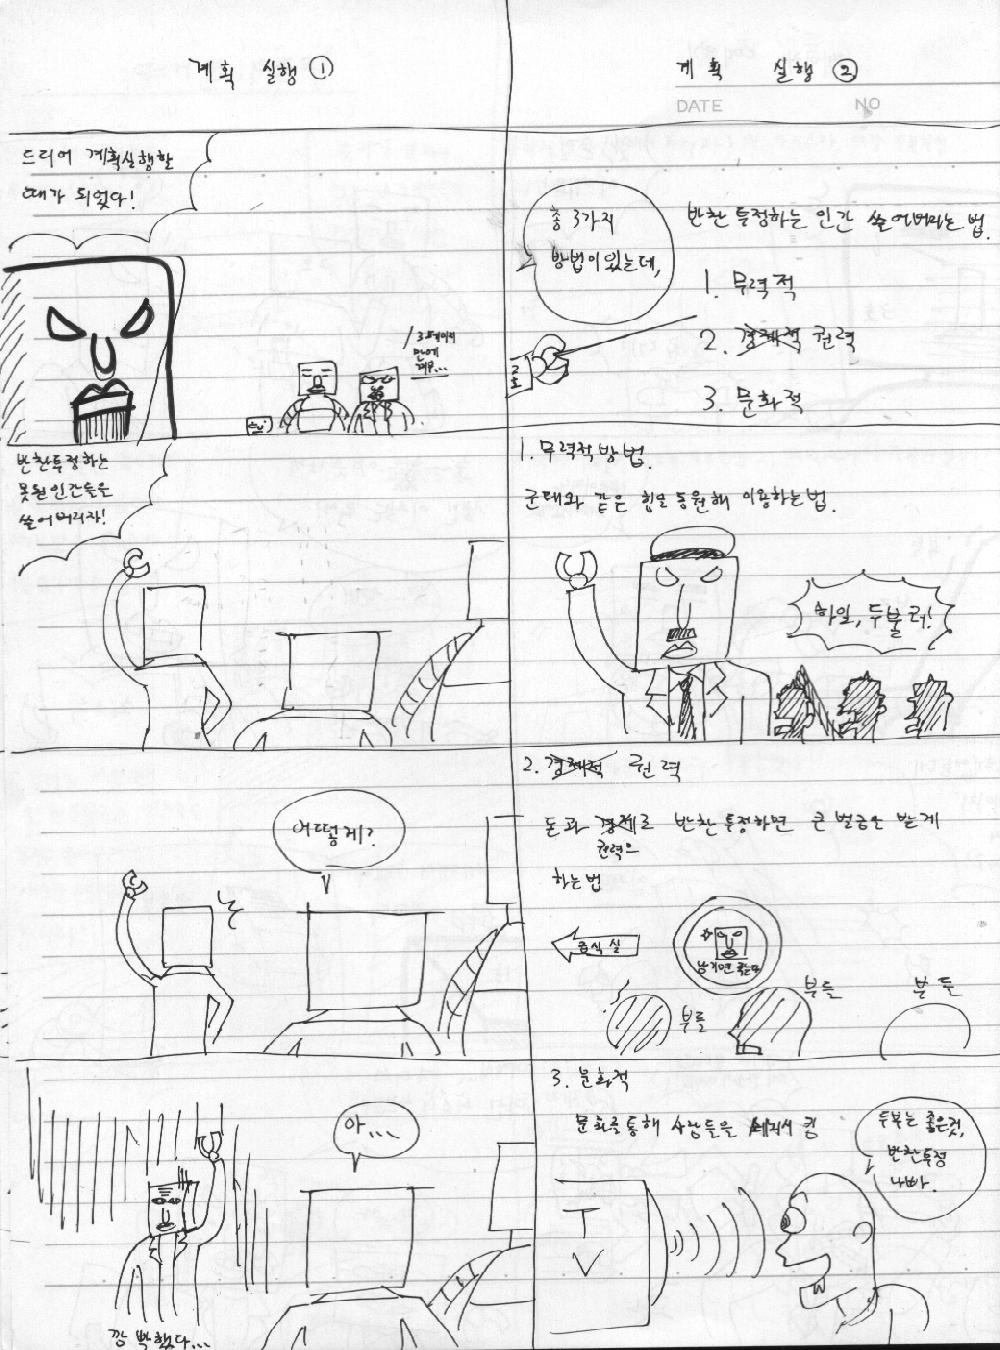 계획 실행 ①
드디어 계획실행할
때가 되었다!
반찬투정하는
못된 인간들을
쓸어버리자!
어떻게?
아....
깜빡했다...
계획 실행 ②
DATE NO
총 3가지
방법이 있는데,
반찬 투정하는 인간 쓸어버리는 법.
1. 무력적
2. 경제적 권력
3. 문화적
1. 무력적 방법.
군대와 같은 힘을 동원해 이용하는 법.
하일, 두불러!
2. 경제적 권력
돈과 경제로 반찬투정하면 큰 벌금을 받게
권력으
하는 법
급식실
남기면 죽는다
부들
부들
부들
3. 문화적
문화를 통해 사람들을 세뇌시킴
TV
두부는 좋은것,
반찬투정
나빠.